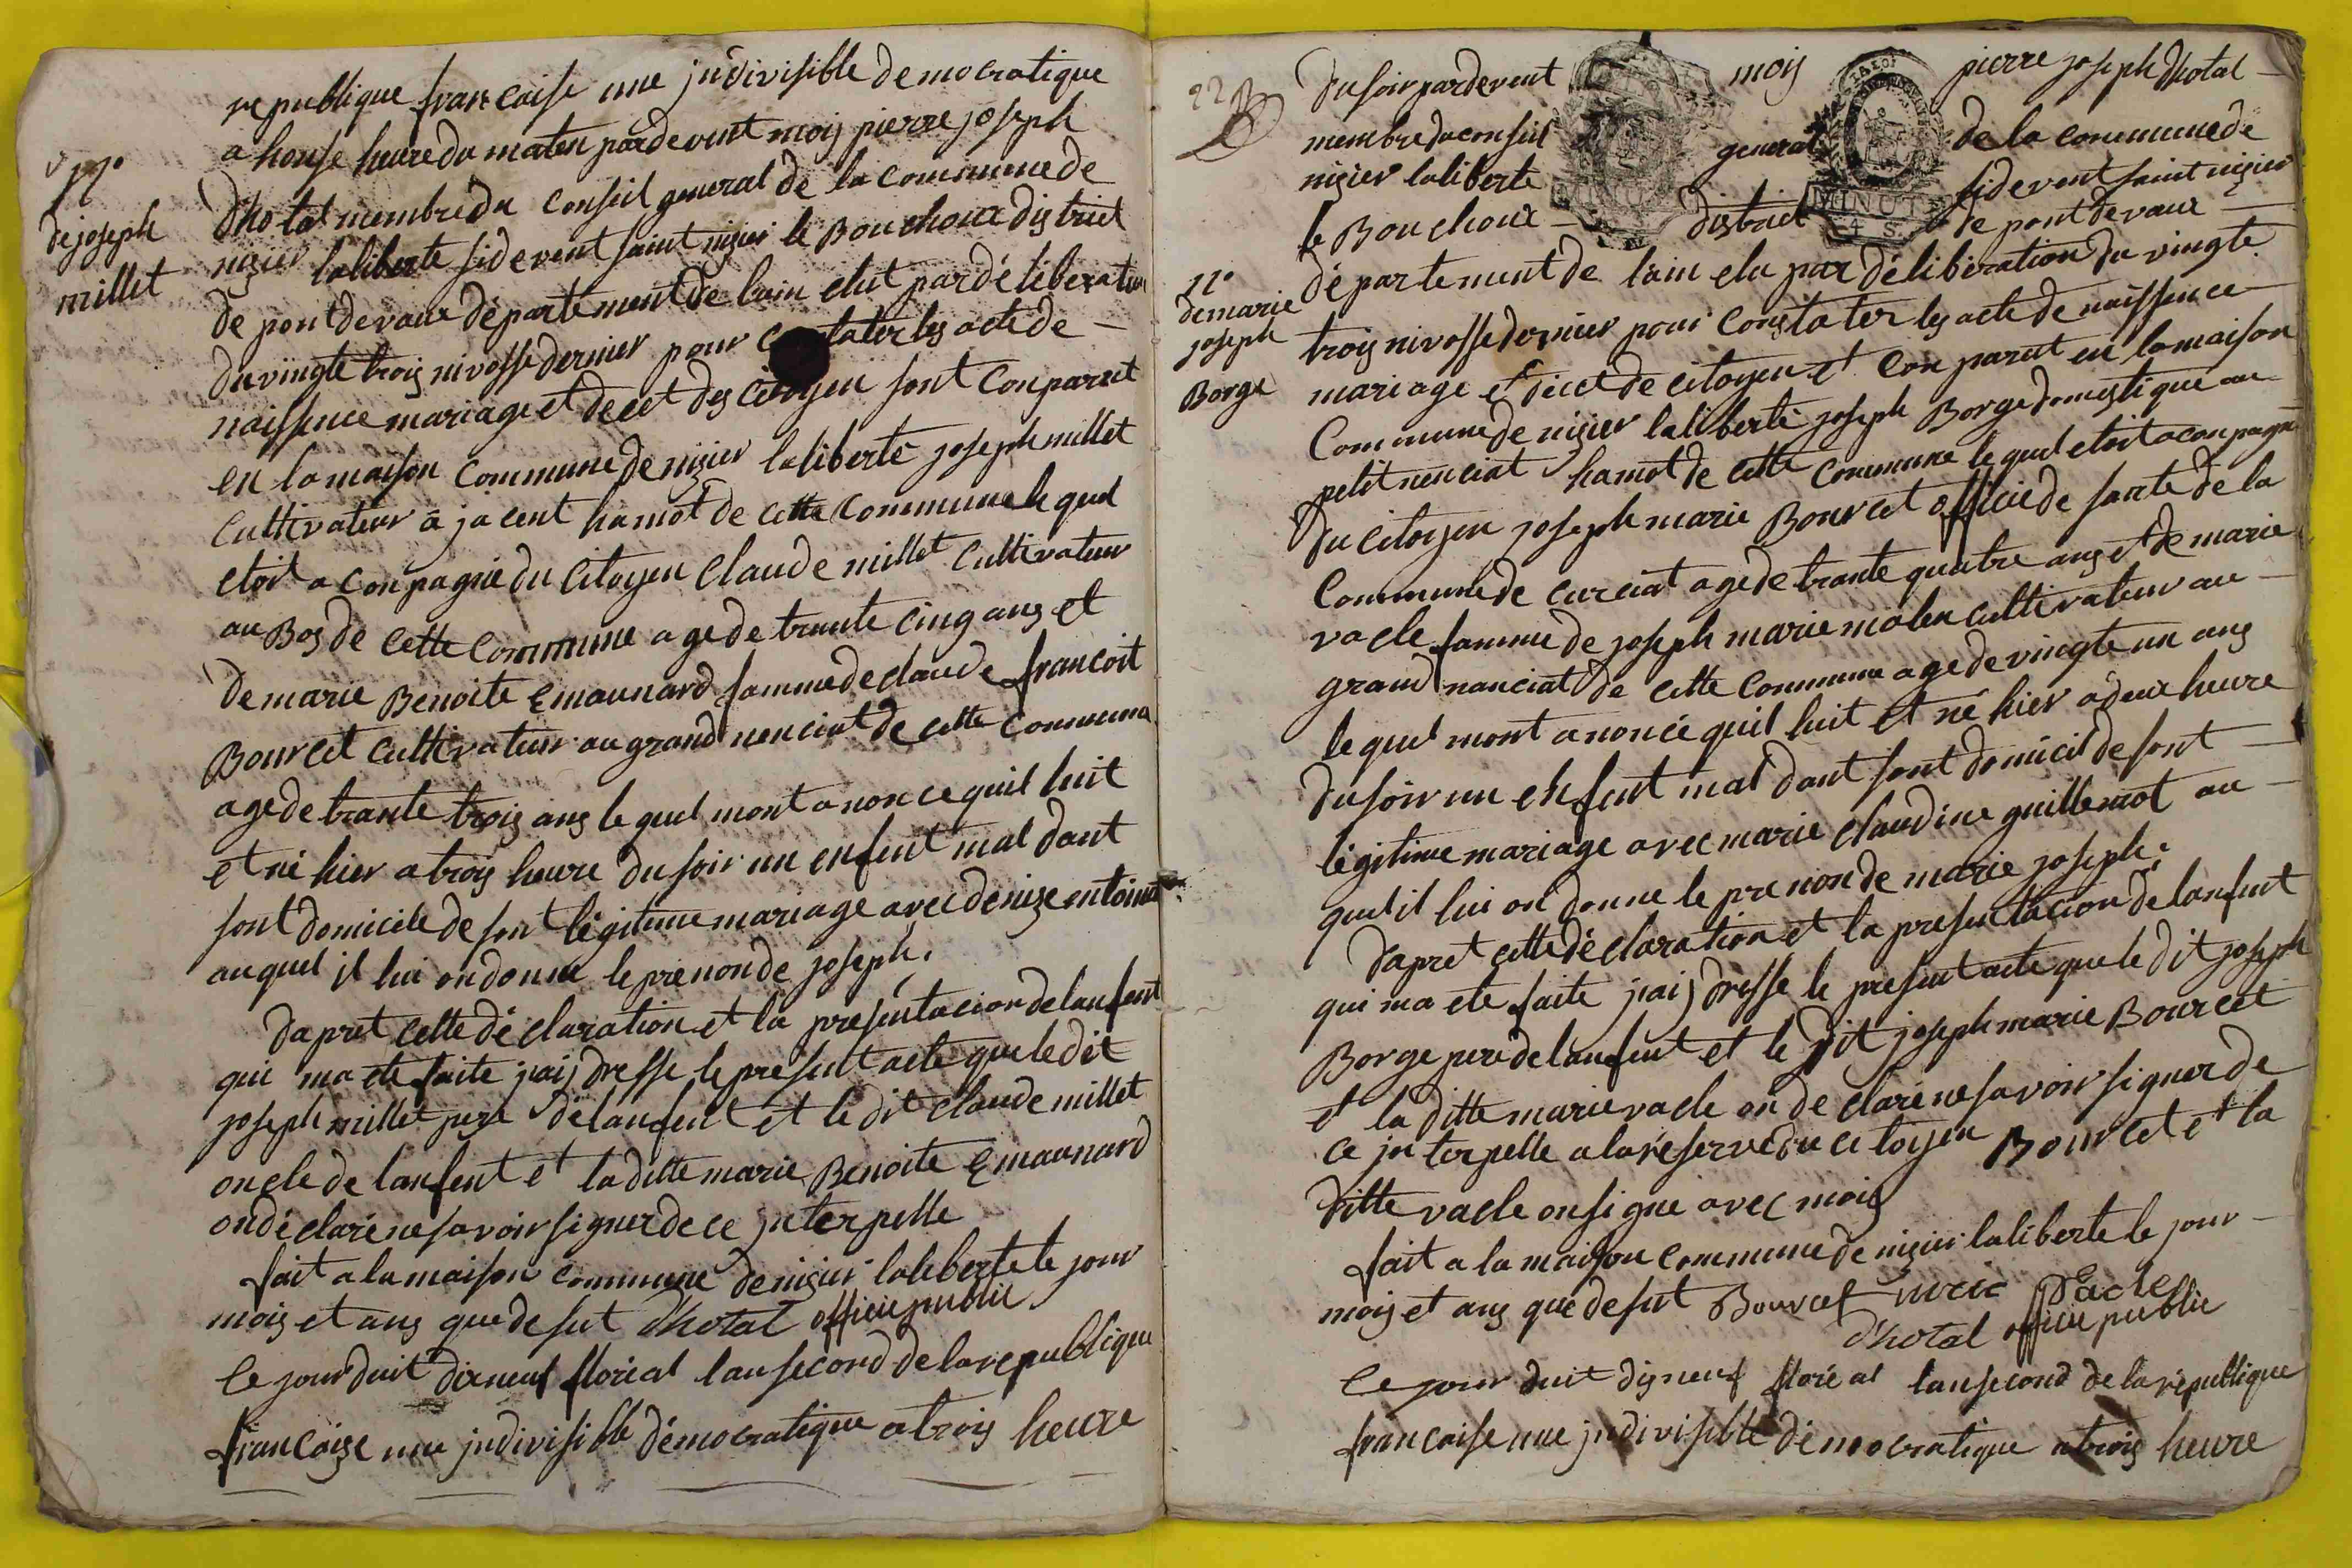 republique francaise une jndivisible democratique
a honse heure du maten pardevent mois pierre joseph
dhotal membre du conseil general de la commune de
nisier laliberte sidevent saint nisier le Bouchoux district
de pontdevaux département de lain elut par déliberation
du vingte trois nivosse dernier pour constater les acte de
naissence mariage et decet des citoyen sont conparut
en la maison commune de nisier laliberté joseph millet
cultivateur a jacent hamot de cette commune le quel
etoit a conpagnie du citoyen claude millet cultivateur
au Bos de cette commune age de trante cinq ans et
de marie Benoite Emaunard famme de claude francoit
Bourcet cultivateur au grand nenciat de cette commune
age de trante trois ans le quel mont anonce quil luit
et né hier a trois heure du soir un enfent mal dant
sont domicile de sont légitime mariage avec denize entoine
auquel il lui on donne le prenon de joseph.
dapret cette déclaration et la presentacion de lanfent
qui ma ete faite jaij dresse le present acte que le dit
joseph millet pere de lanfent et le dit claude millet
oncle de lanfent et la ditte marie Benoite Emaunard
on déclaré ne savoir signer de ce jnterpelle
fait a la maison commune de nisier laliberte le jour
mois et ans que desut dhotal officie public
Ce jourduit dixneuf floréal lan second de la republique
francoise une jndivisible démocratique a trois heure
11°
de joseph
millet
22
du soir pardevent mois pierre joseph dhotal
membre du conseil general de la commune de
nisier laliberte sidevent saint nisier
le Bouchoux district de pontdevaux
MINUTE
MINUTE
4 S
département de lain elu par délibération du vingte
trois nivosse dernier pour constater les acte de naissence
mariage et decet de citoyen et conparut en la maison
commune de nisier laliberté joseph Borge domestique au
petit nenciat hamot de cette commune le quel etoit aconpagne
du citoyen joseph marie Bourcet officie de sante de la
commune de curciat age de trante quatre ans et de marie
vacle famme de joseph marie molen cultivateur au
grand nanciat de cette commune age de vingte un ans
le quel mont anoncé quil luit et né hier a deux heure
du soir un enfent mal dant sont domicil de sont
légitime mariage avec marie claudine guillemot au
quel il lui on donne le prenon de marie joseph.
dapret cette déclaration et la presentacion de lanfent
qui ma ete faite jaij dresse le present acte que le dit joseph
Borge pere de lanfent et le dit joseph marie Bourcet
et la ditte marie vacle on declaré ne savoir signer de
ce jnterpelle a la réserve du citoyen Bourcet et la
ditte vacle on signe avec mois
fait a la maison commune de nisier laliberte le jour
mois et ans que desut Bourcet
dhotal officie public
Ce jour duit dixneuf floréal lan second de la république
francaise une jndivisible démocratique a trois heure
12°
de marie
joseph
Borge